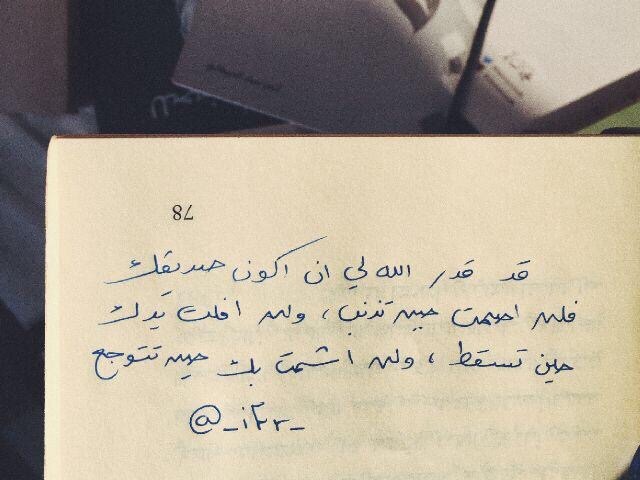 78
قد قدر الله لي ان اكون صديقك
فلن اصمت حين تذنب، ولن افلت يدك
حين تسقط، ولن اشمت بك حين تتوجع